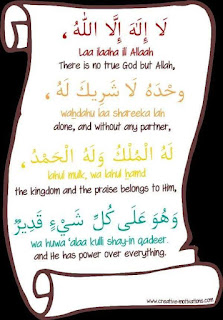 لَا إِلَهَ إِلَّا اللَّهُ ،
Laa ilaaha ill Allaah
There is no true God but Allah,
وَحْدَهُ لَا شَرِيكَ لَهُ ،
waḥdahu laa shareeka lah
alone, and without any partner,
لَهُ الْمُلْكُ وَلَهُ الْحَمْدُ ،
lahul mulk, wa lahul ḥamd
the kingdom and the praise belongs to Him,
وَهُوَ عَلَى كُلِّ شَيْءٍ قَدِيرٌ
wa huwa 'alaa kulli shay-in qadeer.
and He has power over everything.
www.creative-motivations.com